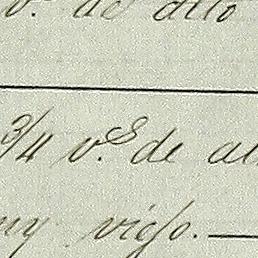 v.s de dito
3/4 v.s de al
my viejo.